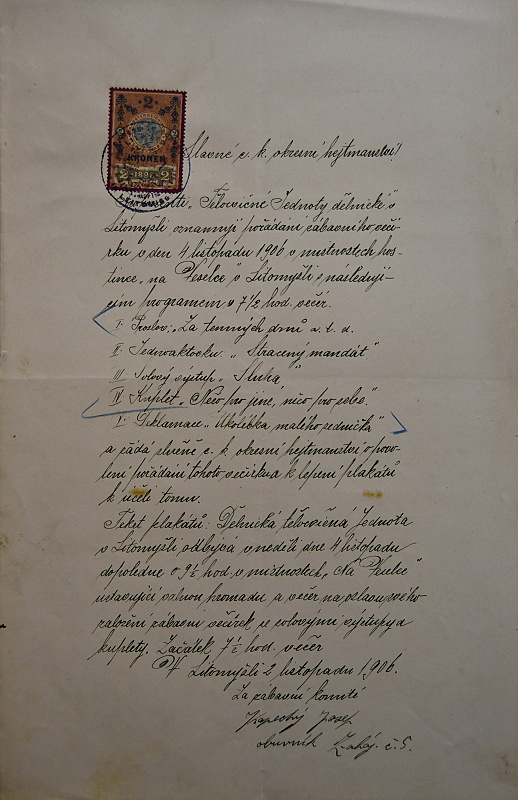 2
KRONEN
2 1897 2
Slavné c. k. okresní hejtmanství!
"Tělocvičné Jednoty dělnické" v
Litomyšli oznamují pořádání zábavního večír-
ku v den 4 listopadu 1906 v místnostech hos-
tince "na Veselce" v Litomyšli s následují-
cím programem v 7 1/2 hod. večer.
I. Proslov: "Za temných dnů a. t. d.
II. Jednoaktovku: "Stracený mandát."
III Solový výstup "Sluka"
IV Kuplet "Něco pro jiné, něco pro sebe".
Deklamace "Ukolébka malého sednička"
a žádá slavné c. k. okresní hejtmanství o povo-
lení pořádání tohoto večírku a k lepení plakátů
k účeli tomu.
Tekst plakátů: Dělnická tělocvičná Jednota
v Litomyšli odbývá v neděli dne 4 listopadu
dopoledne o 9 1/2 hod. v místnostech "Na Veselce"
ustavující valnou hromadu a večer na oslavu svého
založení zábavní večírek se solovými výstupy a
kuplety. Začátek 7 1/2 hod. večer
V Litomyšli 2 listopadu 1906.
Za zábavní komité
Josef
obuvník Zaháj. č. 5.